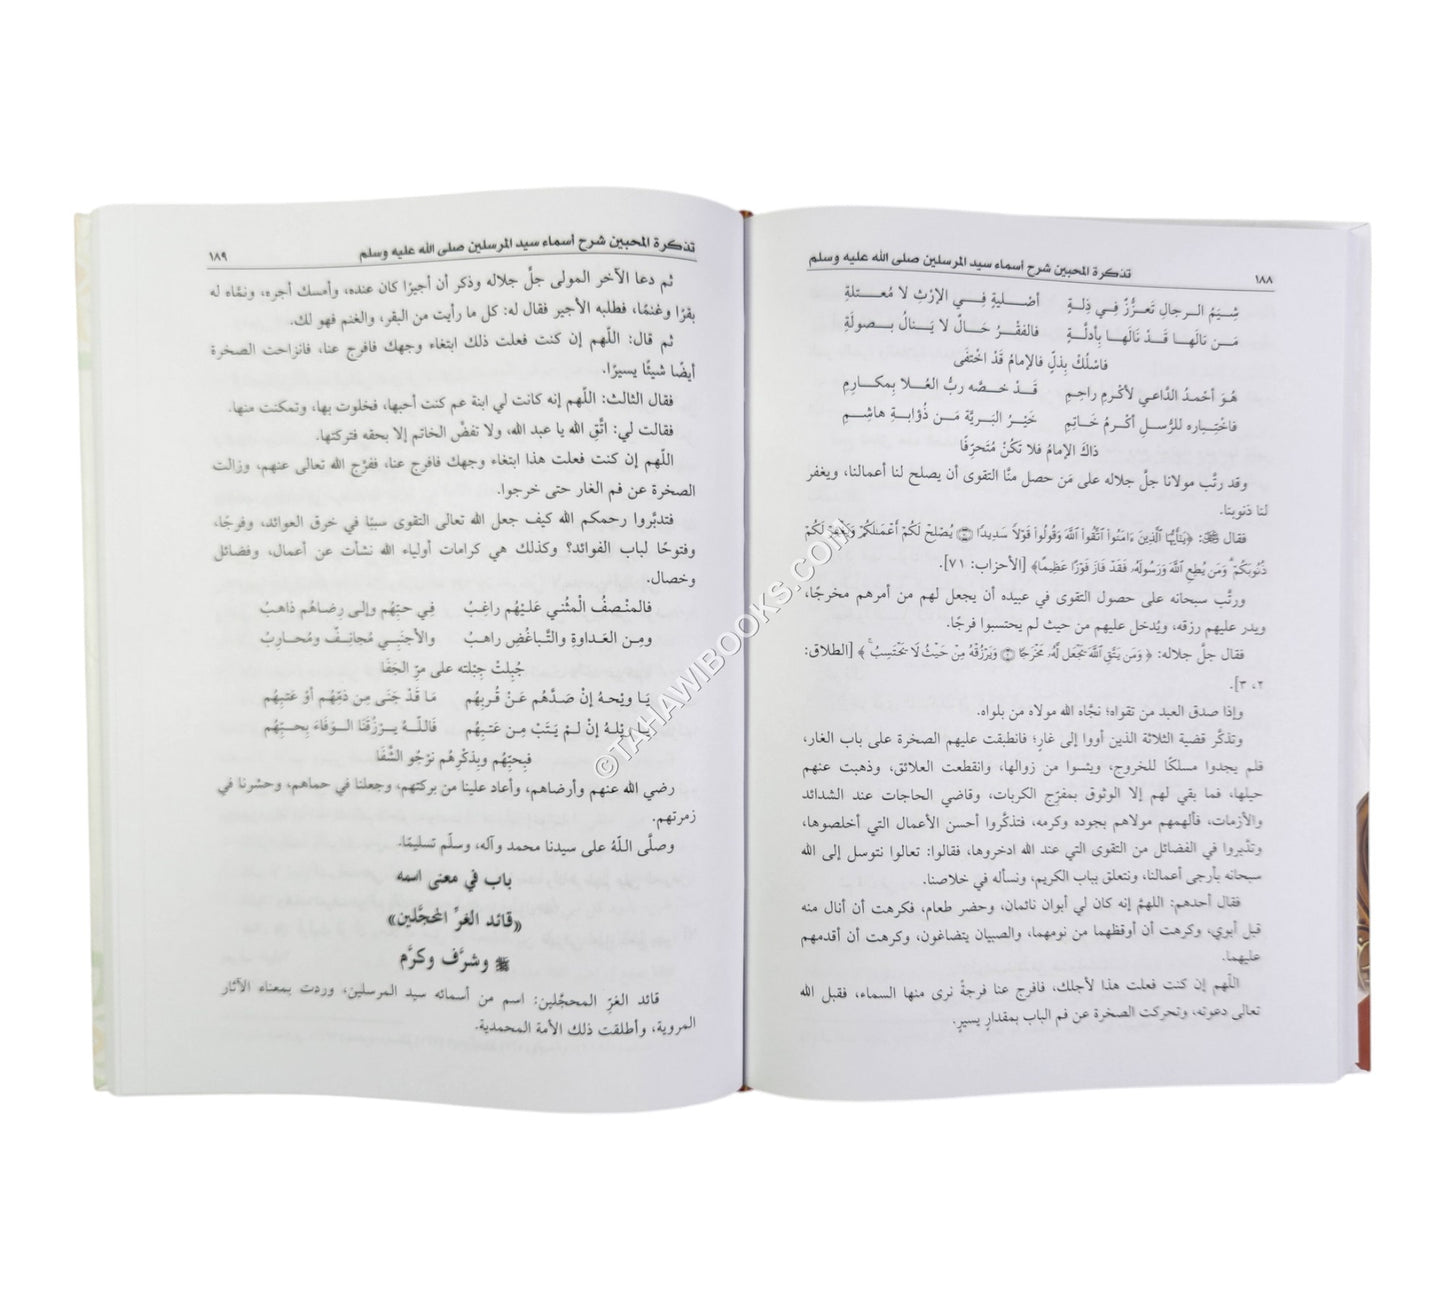 تذكرة المحبين شرح أسماء سيد المرسلين صلى الله عليه وسلم
١٨٨
شِيَمُ الـرجالِ تَعزُّزٌ فِـي ذِلـةِ أصْـليةٍ فِـي الإرْثِ لا مُعـتلةِ
مَـن نالَهـا قَـدْ نَالَهـا بِأدلَّـةِ فالفقْـرُ حَـالٌ لا يَـنالُ بـصولَةِ
فاسْلُكْ بِذلّ فالإمامُ قَدْ اخْتَفَى
هُـوَ أحْمـدُ الدَّاعـي لأكْـرمِ راحِـمِ قَـدْ خـصَّه ربُّ العُـلا بِمكـارِمِ
فاخْتِـباره للرُّسـلِ أكْـرمُ خَـاتِمِ خَيْـرُ البَـريَّة مَـن ذُؤابـةِ هاشِـمِ
ذاكَ الإمامُ فلا تَكُنْ مُتَحرِفًا
وقد رتَّب مولانا جلَّ جلاله على مَن حصل منَّا التقوى أن يصلح لنا أعمالنا، ويغفر
لنا ذنوبنا.
فقال ﷺ: ﴿يَٰٓأَيُّهَا ٱلَّذِينَ ءَامَنُواْ ٱتَّقُواْ ٱللَّهَ وَقُولُواْ قَوْلًا سَدِيدًا ۝ يُصْلِحْ لَكُمْ أَعْمَٰلَكُمْ وَيَغْفِرْ لَكُمْ
ذُنُوبَكُمْ ۗ وَمَن يُطِعِ ٱللَّهَ وَرَسُولَهُۥ فَقَدْ فَازَ فَوْزًا عَظِيمًا﴾ [الأحزاب: ٧١].
ورتَّب سبحانه على حصول التقوى في عبيده أن يجعل لهم من أمرهم مخرجًا،
ويدر عليهم رزقه، ويُدخل عليهم من حيث لم يحتسبوا فرجًا.
فقال جلَّ جلاله: ﴿ وَمَن يَتَّقِ ٱللَّهَ يَجْعَل لَّهُۥ مَخْرَجًا ۝ وَيَرْزُقْهُ مِنْ حَيْثُ لَا يَحْتَسِبُ ۚ ﴾ [الطلاق:
٢، ٣].
وإذا صدق العبد من تقواه؛ نجَّاه الله مولاه من بلواه.
وتذكَّر قضية الثلاثة الذين أووا إلى غارٍ؛ فانطبقت عليهم الصخرة على باب الغار،
فلم يجدوا مسلكًا للخروج، ويئسوا من زوالها، وانقطعت العلائق، وذهبت عنهم
حيلها، فما بقي لهم إلا الوثوق بمفرّج الكربات، وقاضي الحاجات عند الشدائد
والأزمات، فألهمهم مولاهم بجوده وكرمه، فتذكَّروا أحسن الأعمال التي أخلصوها،
وتدَّبروا في الفضائل من التقوى التي عند الله ادخروها، فقالوا: تعالوا نتوسل إلى الله
سبحانه بأرجى أعمالنا، ونتعلق بباب الكريم، ونسأله في خلاصنا.
فقال أحدهم: اللهمَّ إنه كان لي أبوان نائمان، وحضر طعام، فكرهت أن أنال منه
قبل أبوي، وكرهت أن أوقظهما من نومهما، والصبيان يتضاغون، وكرهت أن أقدمهم
عليهما.
اللّهم إن كنت فعلت هذا لأجلك، فافرج عنا فرجةً نرى منها السماء، فقبل الله
تعالى دعوته، وتحركت الصخرة عن فم الباب بمقدارٍ يسيرٍ.
تذكرة المحبين شرح أسماء سيد المرسلين صلى الله عليه وسلم
١٨٩
ثم دعا الآخر المولى جلَّ جلاله وذكر أن أجيرًا كان عنده، وأمسك أجره، ونمَّاه له
بقرًا وغنمًا، فطلبه الأجير فقال له: كل ما رأيت من البقر، والغنم فهو لك.
ثم قال: اللّهم إن كنت فعلت ذلك ابتغاء وجهك فافرج عنا، فانزاحت الصخرة
أيضًا شيئًا يسيرًا.
فقال الثالث: اللّهم إنه كانت لي ابنة عم كنت أحبها، فخلوت بها، وتمكنت منها.
فقالت لي: اتَّقِ الله يا عبد الله، ولا تفضَّ الخاتم إلا بحقه فتركتها.
اللّهم إن كنت فعلت هذا ابتغاء وجهك فافرج عنا، ففرَّج الله تعالى عنهم، وزالت
الصخرة عن فم الغار حتى خرجوا.
فتدبَّروا رحمكم الله كيف جعل الله تعالى التقوى سببًا في خرق العوائد، وفرجًا،
وفتوحًا لباب الفوائد؟ وكذلك هي كرامات أولياء الله نشأت عن أعمال، وفضائل
وخصال.
فالمنْـصفُ الْمثْنـي عَليْـهُم راغِـبُ فِـي حبِّهُم وإلـى رِضاهُـم ذاهـبُ
ومِـن العـداوةِ والتَّـباغُضِ راهـبُ والأجنَبِـي مُجانِـفٌ ومُحـاربُ
جُبِلتْ جِبْلته على مرِّ الجَفَا
يَـا ويْحـهُ إنْ صَـدَّهُم عَـنْ قُـربِهُم مَـا قَدْ جَنَـى مِن ذمِّهُم أوْ عَتبِهُم
يَـا ويْلـهُ إنْ لـمْ يَـتَبْ مِـن عَتـبِهُم فَاللـهُ يـرْزُقنَا الـوفَاءَ بِحـبِّهُم
فبِحبِّهُم وبِذكْرِهُم نرْجُو الشَّفَا
رضي الله عنهم وأرضاهم، وأعاد علينا من بركتهم، وجعلنا في حماهم، وحشرنا في
زمرتهم.
وصلَّى اللهُ على سيدنا محمد وآله، وسلّم تسليمًا.
باب في معنى اسمه
«قائد الغرِّ المحجَّلين»
ﷺ وشرَّف وكرَّم
قائد الغرِّ المحجلين: اسم من أسمائه سيد المرسلين، وردت بمعناه الآثار
المروية، وأطلقت ذلك الأمة المحمدية.
©TAHAWIBOOKS.COM